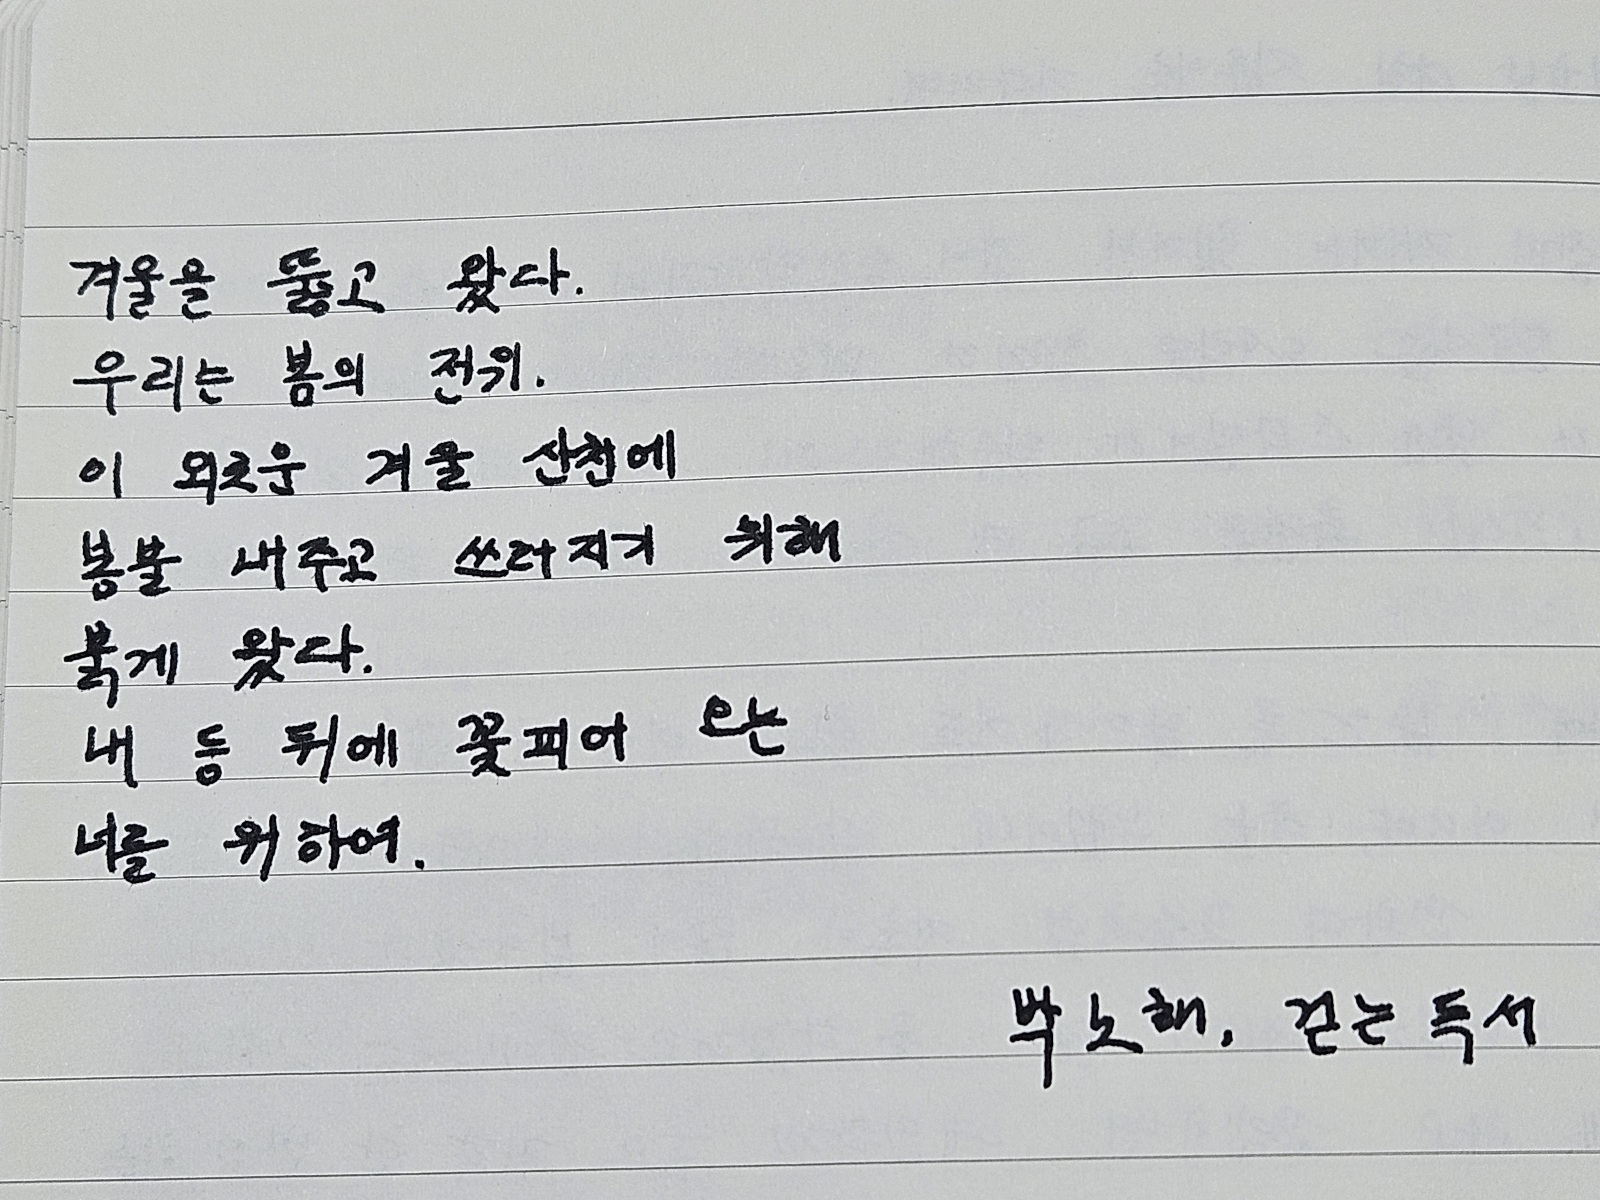 겨울을 뚫고 왔다.
우리는 봄의 전위.
이 외로운 겨울 산천에
봄불 내주고 쓰러지기 위해
붉게 왔다.
내 등 뒤에 꽃피어 오는
너를 위하여.
박노해, 걷는 독서